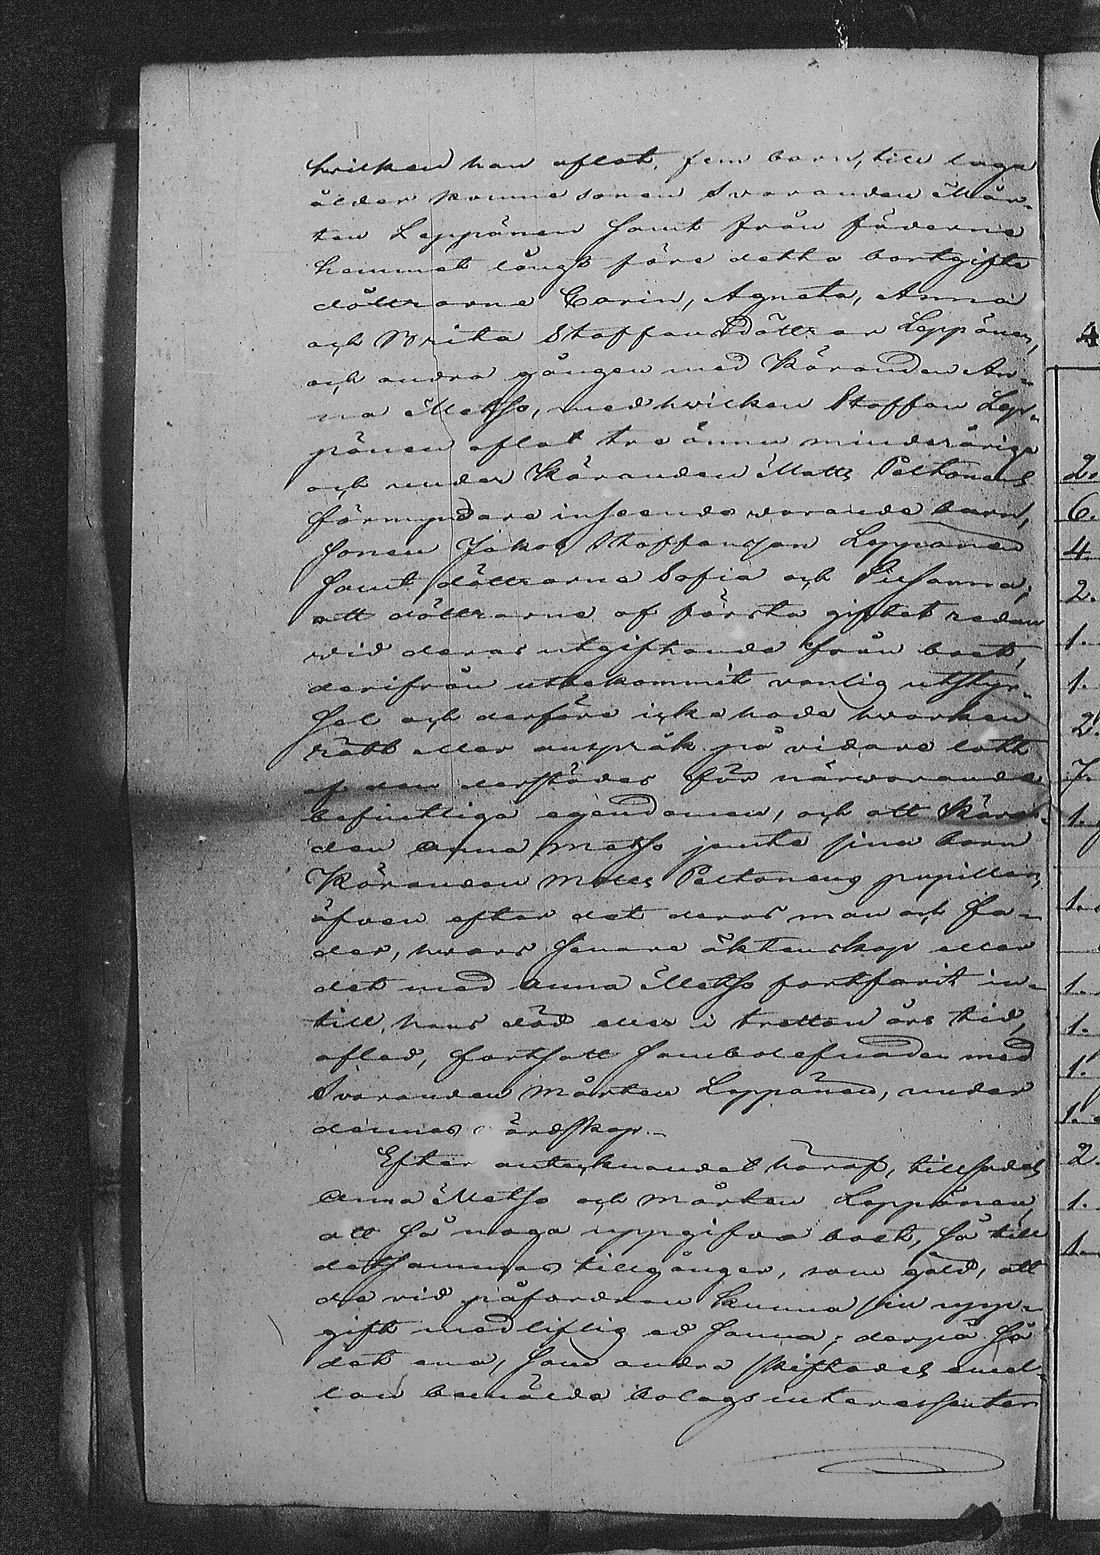 hvilken han aflat, fem barn, till laga
ålder komne sonen Svaranden Mår-
ten Leppänen samt från föderne
hemmet långt före detta bortgifte
döttrarne Carin, Agneta, Anna
och Brita Staffansdöttrar Leppänen,
och andra gången med Käranden An-
na Metso, med hvilken Staffan Lep-
pänen aflat tre ännu minderåriga
och under Käranden Matts Peltonens
förmyndare inseende warande barn,
sonen Jakob Staffansson Leppänen
samt döttrarne Sofia och Susanna;
att döttrarne af första giftet redan
wid deras utgiftande från boet,
derifrån utbekommit vanlig utstyr-
sel och derföre icke hade hvarken
rätt eller anspråk på vidare lott
af den derstädes för närwarande
befintliga egendomen, och att Käran-
den Anna Metso jemte sina barn
Käranden Matts Peltonens pupiller,
äfven efter det deras man och fa-
der, hvars senare äktenskap eller
det med Anna Metso fortfarit in-
till hans död eller i tretton års tid,
afled, fortsatt sambolefnaden med
Svaranden Mårten Leppänen, under
dennas värdskap.
Efter antecknandet häraf, tillsades
Anna Metso och Mårten Leppänen,
att så noga uppgifva boet, så till
detsammas tillgånger, som gäld, att
de vid påfordran kunna sin upp-
gift med liflig ed sanna; derpå så
det ena, som andra skiftades emel-
lan bemälde bolagsinteressenter
4
2.
6.
4
2.
1.
1.
2.
7.
1.
1.
1.
1.
1.
1.
2.
1.
1.